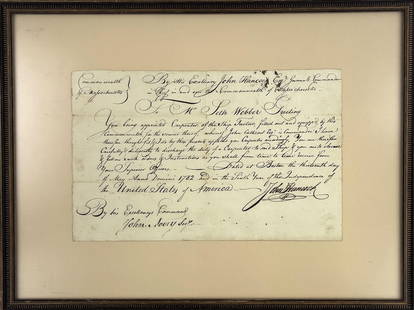 Commonwealth
of Massachusetts
By His Excellency John Hancock Esqr. Governor & Commander
in Chief in and over the Commonwealth of Massachusetts
To Mr. Seth Webber Greeting
You being appointed Carpenter of the Ship fitted out and equipped by this
Commonwealth for the service thereof, whereof John Esq. is Commander I have
thereof & do by these presents appoint you Carpenter accordingly You are therefore
Carefully & diligently to discharge the duty of a Carpenter to said Ship & you are to observe
& follow such Orders & Instructions as you shall from time to time receive from
Your Superior Officers Dated at Boston the thirteenth day
of May Anno Domini 1782 And in the Sixth Year of the Independence of
the United States of America
John Hancock
By his Excellencys Command
John Avery Secy.